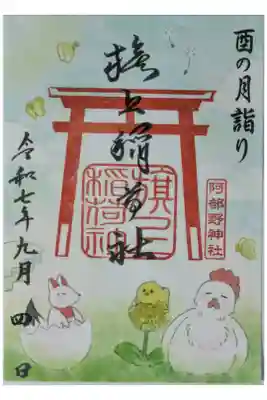 酉の月詣り
阿部野神社
旗上稲荷社
旗上
稲荷社
令和七年九月四日